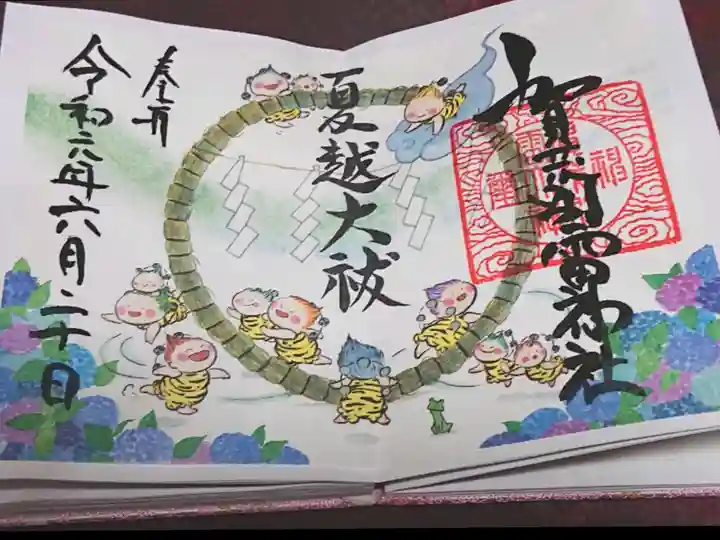 賀茂別雷神社
夏越大祓
奉拝
令和六年六月二十日